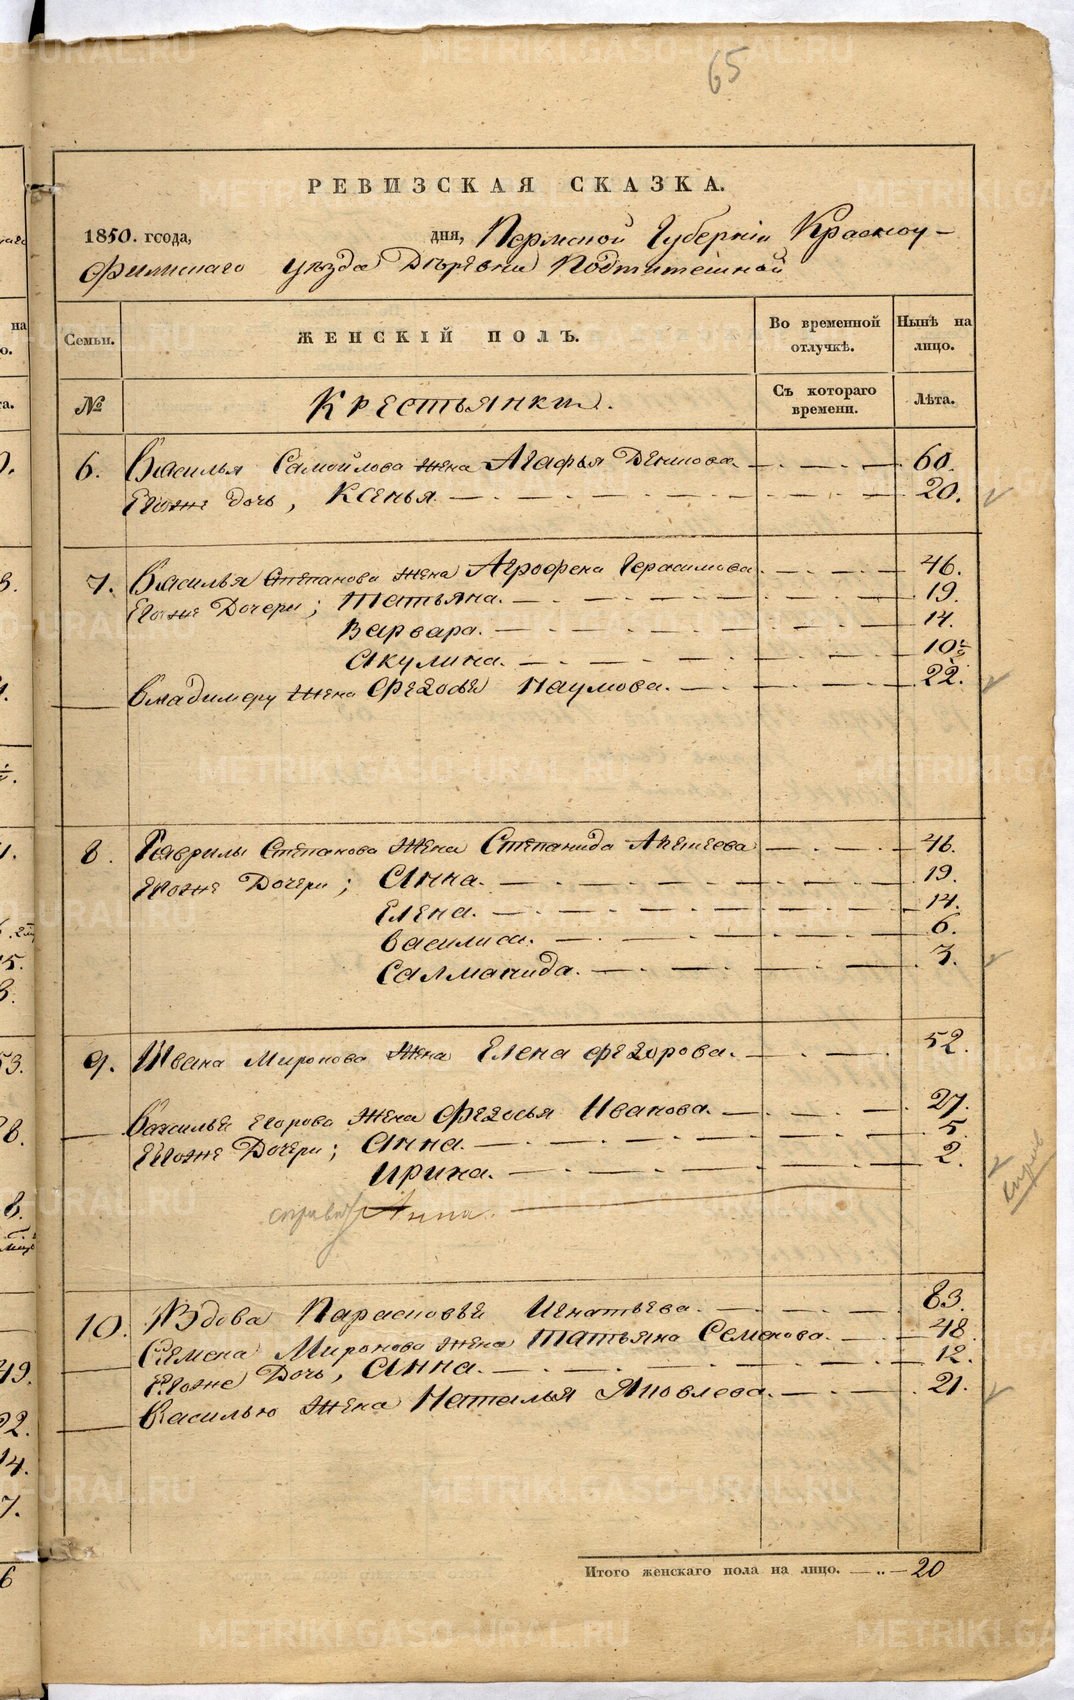 65
РЕВИЗСКАЯ СКАЗКА.
1850. года, дня, Пермской Губернiи Красноу-
фимскаго Уѣзда Деревни Подтитешной
Семьи. ЖЕНСКІЙ ПОЛЪ. Во временной отлучкѣ. Нынѣ на лицо.
№ Крестьянки. Съ котораго времени. Лѣта.
6. Василья Самойлова жена Агафья Денисова. 60.
Егоже дочь, Ксенья. 20.
7. Василья Степанова жена Агрофена Герасимова. 46.
Егоже Дочери; Татьяна. 19.
Варвара. 14.
Акулина. 10
Владимеру Жена Федосья Наумова. 22.
8. Гаврилы Степанова Жена Степанида Алексеева 46.
Егоже Дочери; Анна. 19.
Елена. 14.
Василиса. 6.
Салманида. 3.
9. Ивана Миронова Жена Елена Федорова. 52.
Василья Егорова Жена Федосья Иванова. 27.
Егоже Дочери; Анна. 5.
Ирина. 2.
Анна.
10. Вдова Парасковья Игнатьева. 83.
Семена Миронова жена Татьяна Семенова. 48.
Егоже Дочь, Анна. 12.
Василью Жена Наталья Яковлева. 21.
Итого женскаго пола на лицо. 20
METRIKI.GASO-URAL.RU